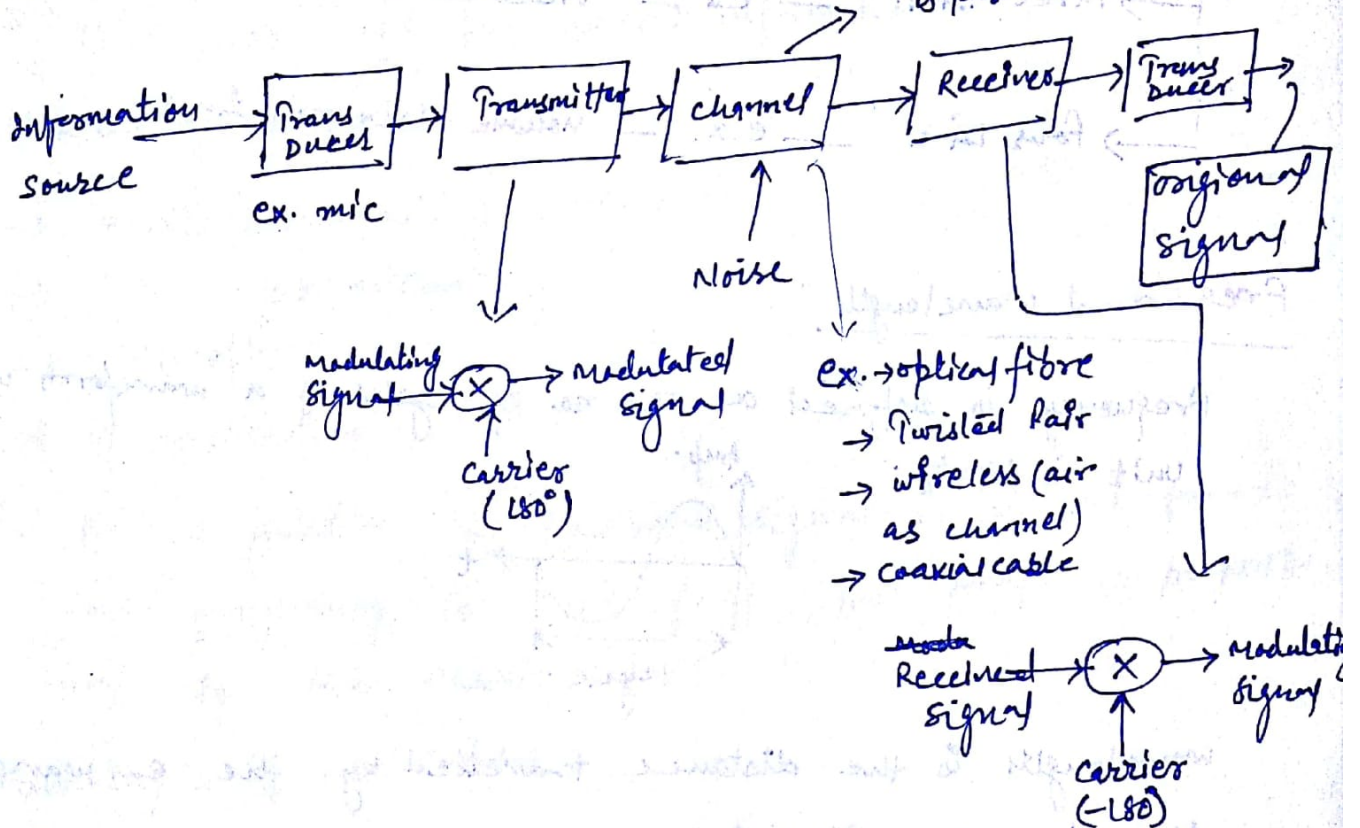 Information
source
Trans
Ducer
ex. mic
Transmitter
channel
Noise
Receiver
Trans
Ducer
origional
signal
Modulating
signal
X
Modulated
signal
carrier
(180°)
ex. → optical fibre
→ Twisted Pair
→ wireless (air
as channel)
→ coaxial cable
Received
signal
X
Modulati
signal
carrier
(-180°)